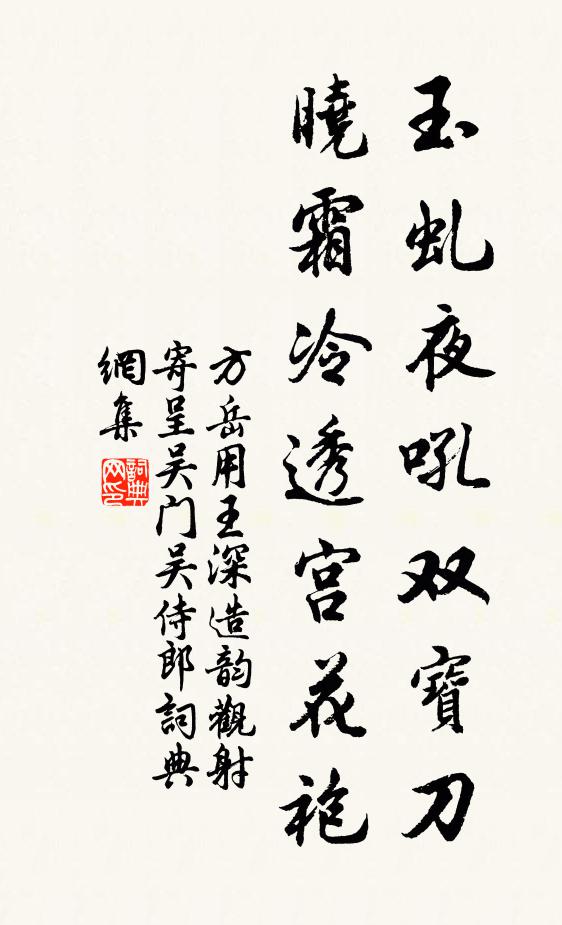 玉虬夜吼双寶刀
曉霜冷透宫花袍
方岳用王深造韵觀射
寄呈吴门吴侍郎詞典
網集
詞典
网印